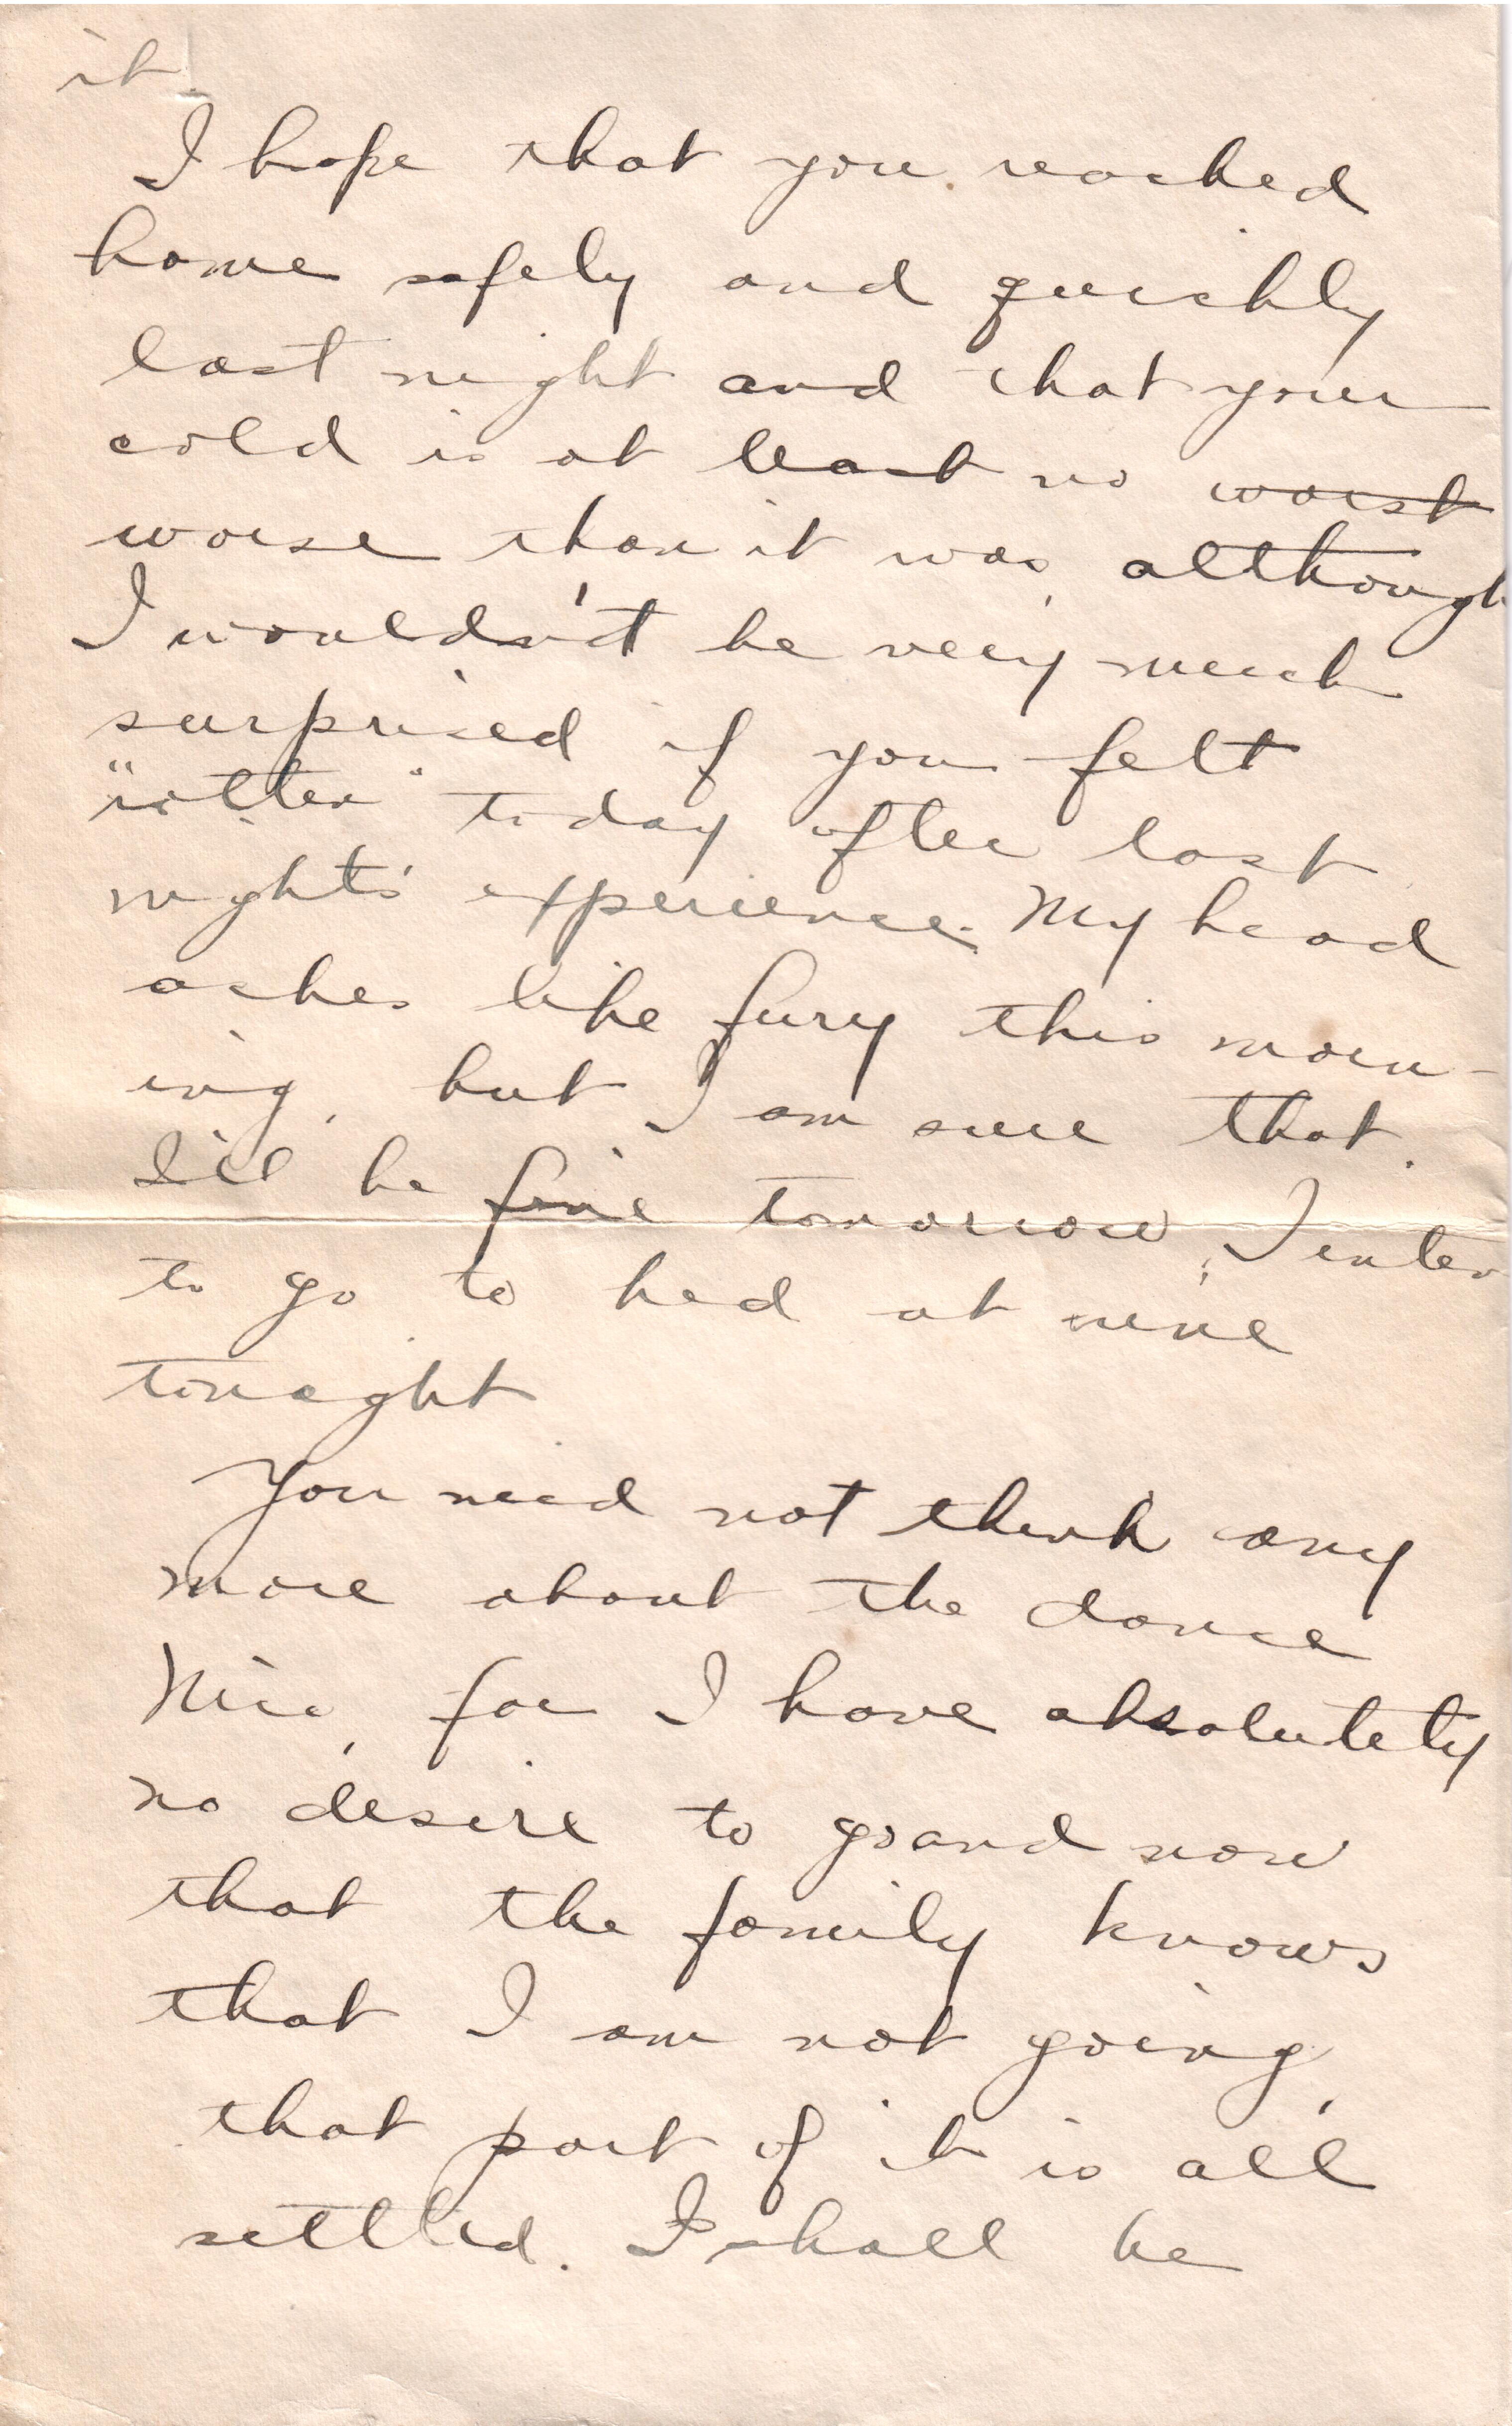 it.
I hope that you reached
home safely and quickly
last night and that your
cold is at least no worst
worse than it was, although
I wouldn't be very much
surprised if you felt
"rotten" today after last
nights' experience. My head
aches like fury this morn-
ing, but I am sure that
I'll be fine tomorrow, I inten
to go to bed at nine
tonight
You need not think any
more about the dance
for I have absolutely
no desire to go and now
that the family knows
that I am not going,
that part of it is all
settled. I shall be